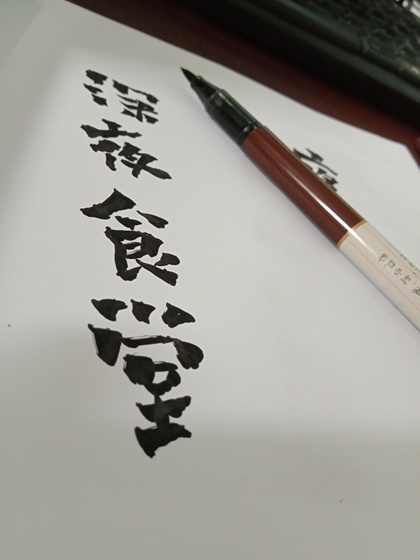 深夜食堂